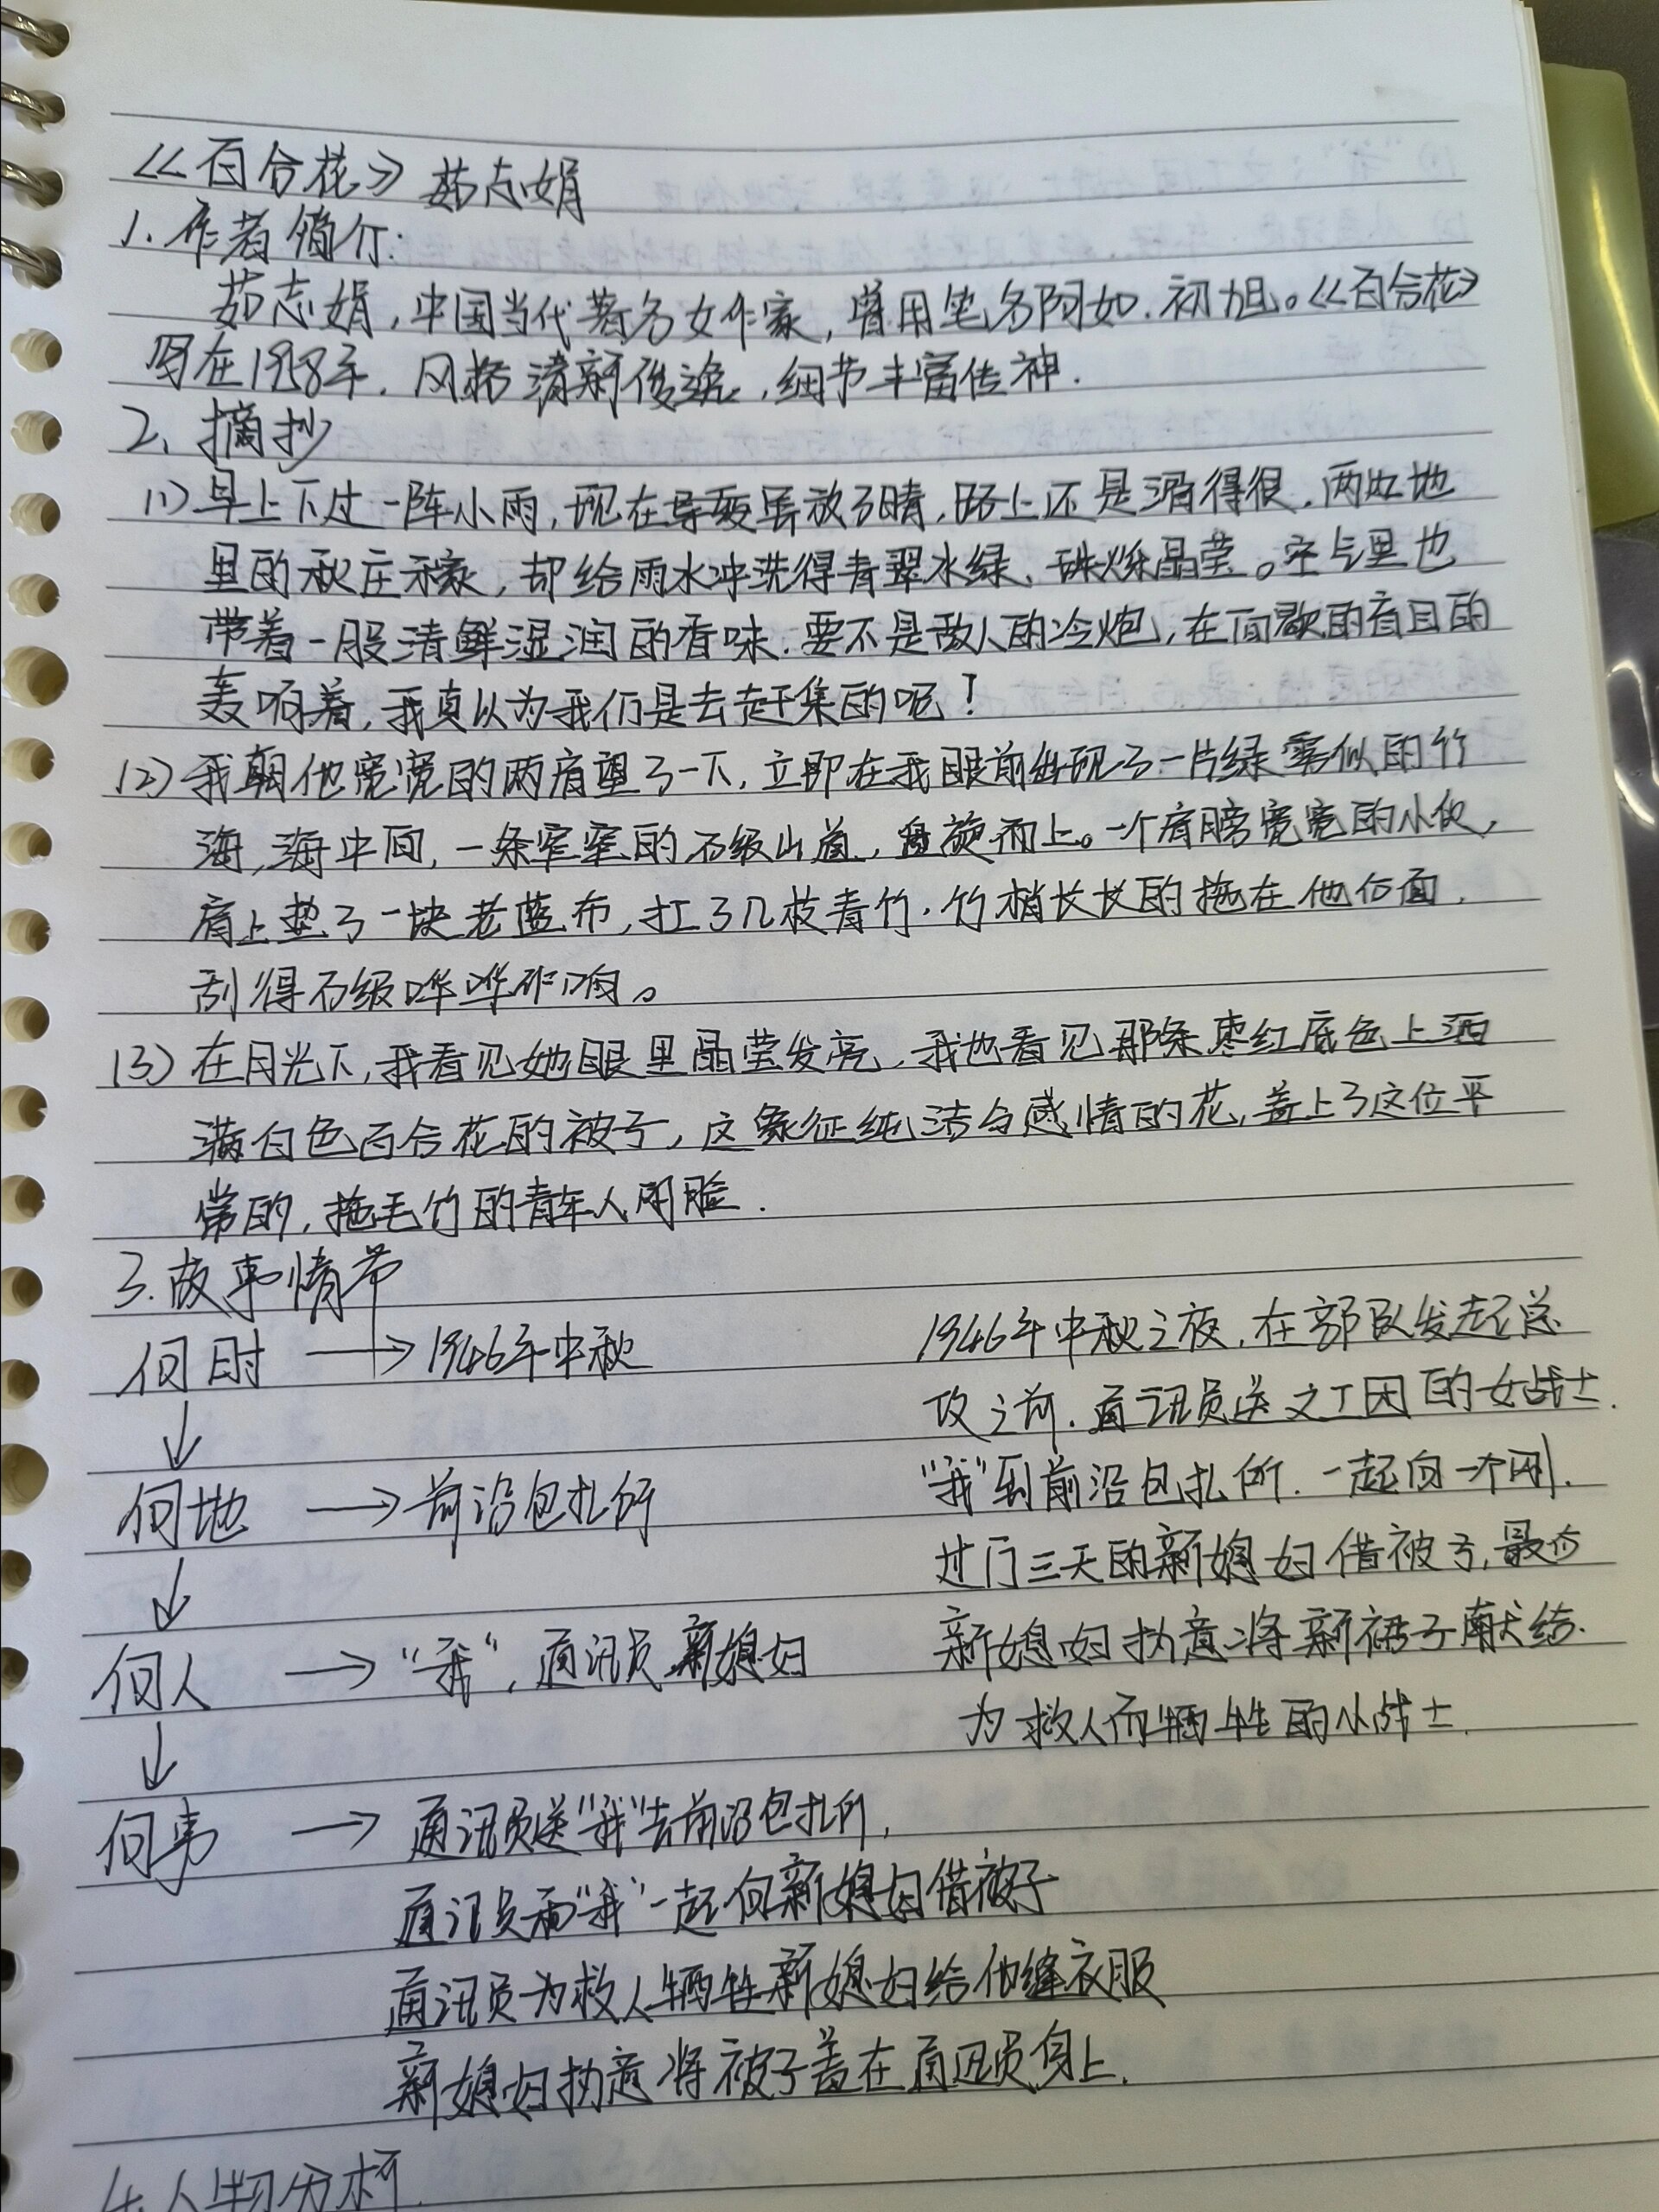 《百合花》 茹志娟
1. 作者简介:
茹志娟,中国当代著名女作家,曾用笔名阿如、初旭。《百合花》
写在1958年,风格清新俊逸,细节丰富传神.
2. 摘抄
(1) 早上下过一阵小雨,现在虽放了晴,路上还是滑得很,两边地
里的秋庄稼,却给雨水冲洗得青翠水绿、珠烁晶莹。空气里也
带着一股清鲜湿润的香味.要不是敌人的冷炮,在间歇的盲目的
轰响着,我真以为我们是去赶集的呢!
(2) 我朝他宽宽的两肩望了一下,立即在我眼前出现了一片绿雾似的竹
海,海中间,一条窄窄的石级山道,盘旋而上。一个肩膀宽宽的小伙,
肩上垫了一块老蓝布,扛了几枝青竹.竹梢长长的拖在他后面.
刮得石级哗哗作响。
(3) 在月光下,我看见她眼里晶莹发亮,我也看见那条枣红底色上洒
满白色百合花的被子,这象征纯洁与感情的花,盖上了这位平
常的,拖毛竹的青年人的脸.
3. 故事情节
何时 → 1946年中秋
↓
何地 → 前沿包扎所
↓
何人 → “我”,通讯员,新媳妇
↓
何事 → 通讯员送“我”去前沿包扎所,
通讯员和“我”一起向新媳妇借被子
通讯员为救人牺牲新媳妇给他缝衣服
新媳妇执意将被子盖在通讯员身上.
1946年中秋之夜,在部队发起总
攻之前.通讯员送文工团的女战士.
“我”到前沿包扎所.一起向一个刚
过门三天的新媳妇借被子,最后
新媳妇执意将新被子献给
为救人而牺牲的小战士.
4.人物分析